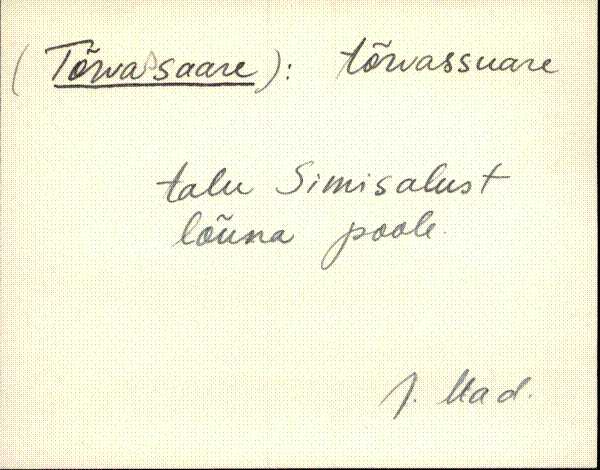 (Tõrvassaare): tõrvassuare
talu Simisalust
lõuna poole.
J. Mad.